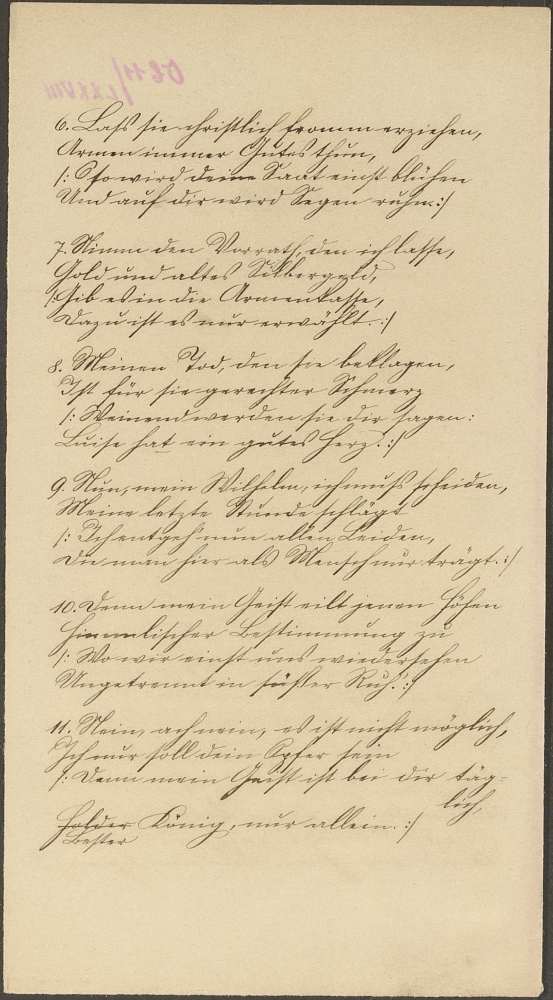 6. Laß sie christlich fromm erziehen,
Armen immer Gutes thun,
/: So wird deine Saat einst blühen
Und auf dir wird Segen ruhn. :/
7. Nimm den Vorrath, den ich lasse,
Gold und altes Silbergeld,
/: Gib es in die Armenkasse,
Dazu ist es nur erwählt. :/
8. Meinen Tod, den sie beklagen,
Ist für sie gerechter Schmerz
/: Weinend werden sie dir sagen:
Luise hat ein gutes Herz. :/
9. Nun, mein Wilhelm, ich muß scheiden,
Meine letzte Stunde schlägt
/: Ich entgeh' nun allen Leiden,
Die man hier als Mensch nur trägt. :/
10. Denn mein Geist eilt jenen Höhen
Himmlischer Bestimmung zu
/: Wo wir einst uns wiedersehen
Ungetrennt in süßer Ruh. :/
11. Nein, ach nein, es ist nicht möglich,
Ich nur soll dein Opfer sein
/: Denn mein Geist ist bei dir täg-
lich,
Holder König, nur allein. :/
Bester